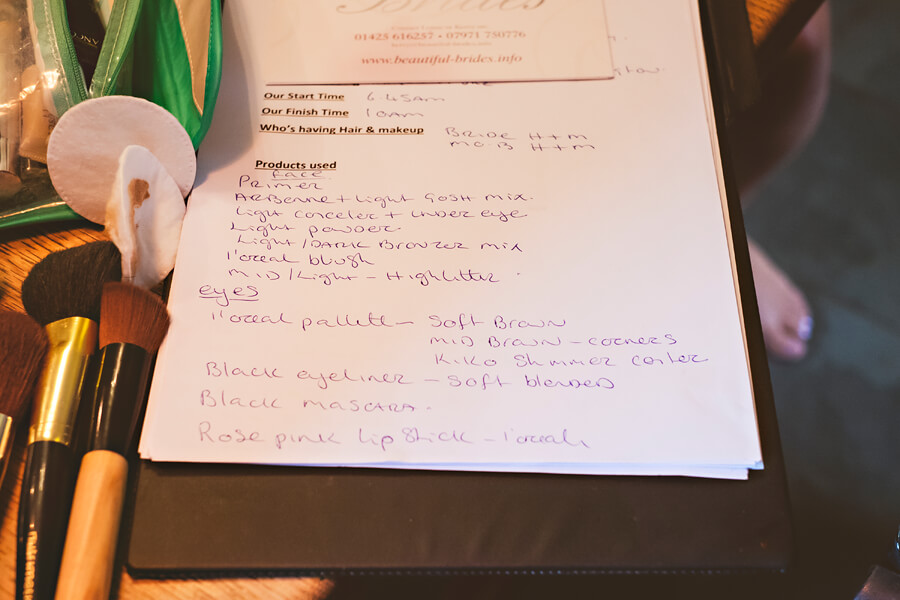 Brides
01425 616257 • 07971 750776
www.beautiful-brides.info
Our Start Time 6 45am
Our Finish Time 10am
Who's having Hair & makeup BRIDE H+M
MO-B H+M
Products used
FACE
PRIMER
ARBONNE + Light GOSH MIX.
Light conceler + under eye
Light powder
Light/DARK Bronzer mix
l'oreal blush
MID/Light - Highlitter
eyes
l'oreal pallett - Soft Brown
MID Brown - corners
KIKO Shimmer center
Black eyeliner - soft blended
Black mascara.
Rose pink lipstick - l'oreal